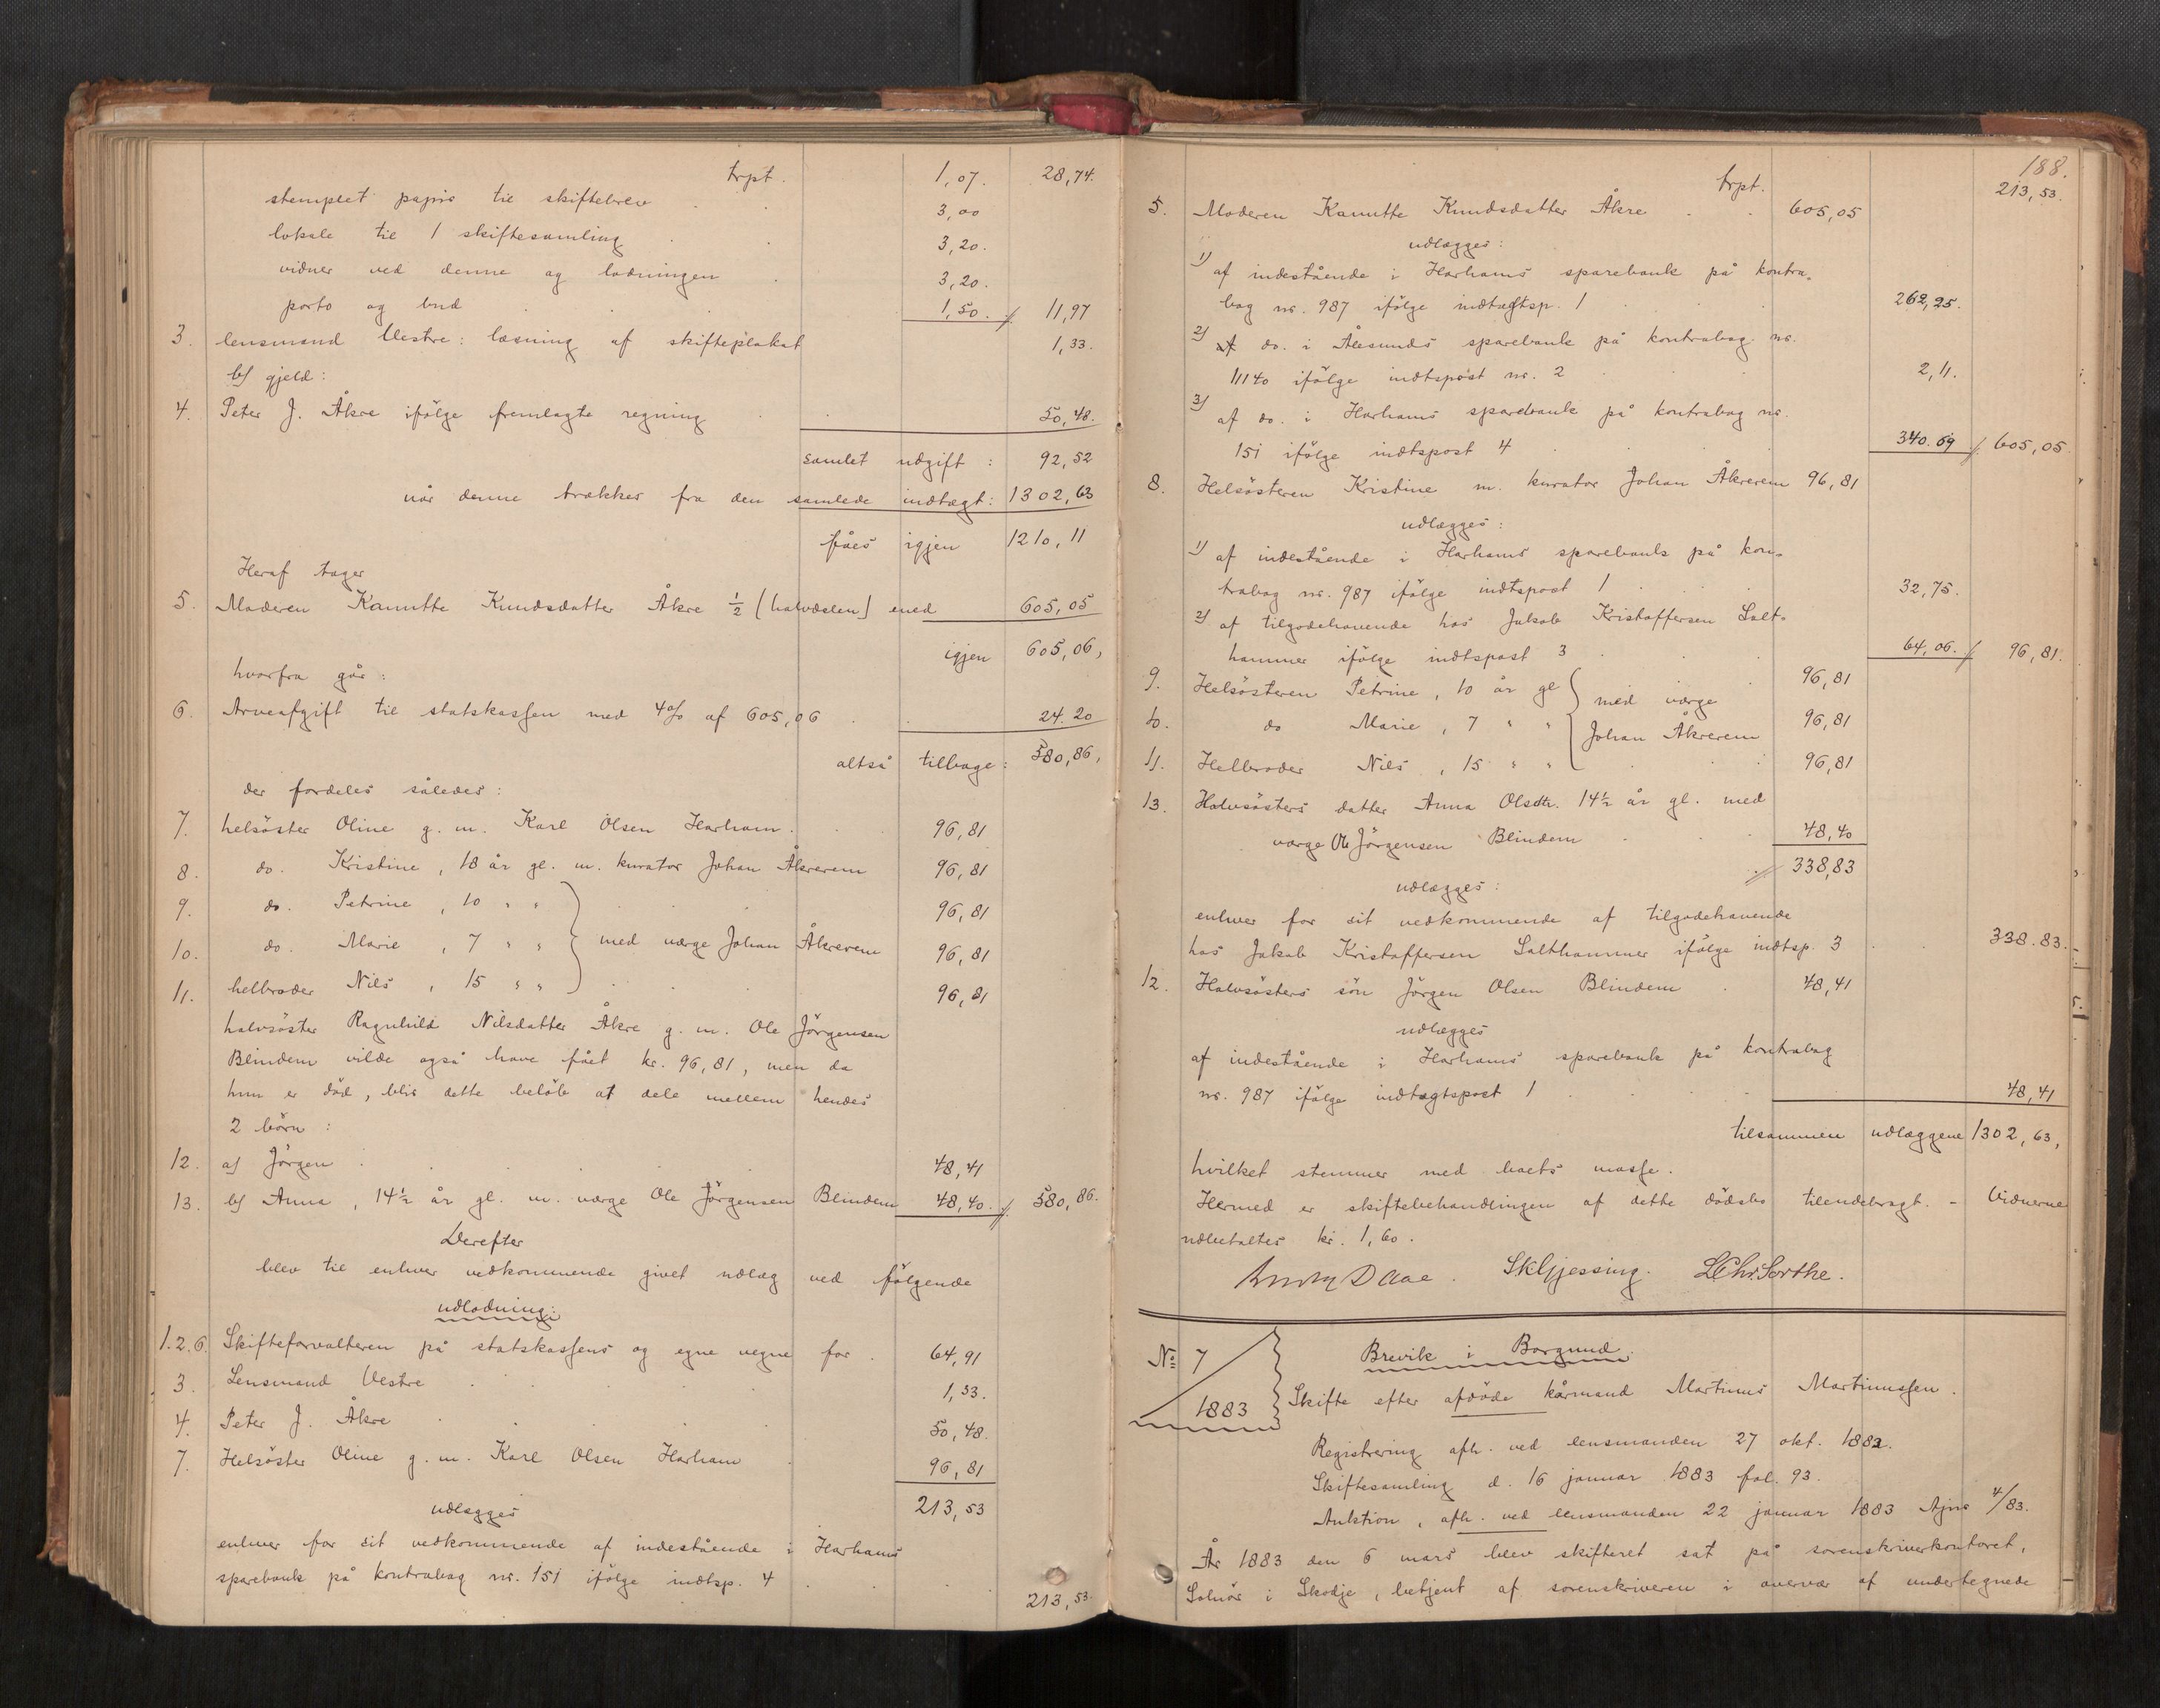 trpt. 1,07. 28,74.
stemplet papir til skiftebrev 3,00
lokale til 1 skiftesamling 3,20.
vidner ved denne og lodningen 3,20.
porto og bud 1,50. 11,97
3. lensmand Vestre: læsning af skifteplakat 1,33.
b) gjeld:
4. Peter J. Åkre ifölge fremlagte regning 50,48.
samlet udgift: 92,52
når denne trækkes fra den samlede indtægt: 1302,63
fåes igjen 1210,11
Heraf tager
5. Moderen Kanutte Knudsdatter Åkre ½ (halvdelen) med 605,05
igjen 605,06,
hvorfra går:
6. Arveafgift til statskassen med 4% af 605,06 24.20
altså tilbage: 580,86,
der fordeles således:
7. helsöster Oline g. m. Karl Olsen Harham. 96,81
8. do. Kristine, 18 år gl. m. kurator Johan Åkrerem 96,81
9. do. Petrine, 10 " " 96,81
10. do. Marie, 7 " " } med værge Johan Åkrerem 96,81
11. helbroder Nils, 15 " " 96,81
halvsöster Ragnhild Nilsdatter Åkre g. m. Ole Jörgensen
Blindem vilde også have fået kr. 96,81, men da
hun er död, blir dette belöb at dele mellem hendes
2 börn:
12. a) Jörgen 48,41
13. b) Anna, 14½ år gl. m. værge Ole Jörgensen Blindem 48,40. 580,86.
Derefter
blev til enhver vedkommende givet udlæg ved fölgende
udlodning:
1.2.6. Skifteforvalteren på statskassens og egne vegne for 64,91
3. Lensmand Vestre 1,33.
4. Peter J. Åkre 50,48.
7. Helsöster Oline g. m. Karl Olsen Harham 96,81
213,53
udlægges
enhver for sit vedkommende af indestående i Harhams
sparebank på kontrabog nr. 151 ifölge indtsp. 4 213,53.
188.
trpt. 213,53.
5. Moderen Kanutte Knudsdatter Åkre 605,05
udlægges:
1) af indestående i Harhams sparebank på kontra-
bog nr. 987 ifölge indtægtsp. 1 262,25.
2) af do. i Ålesunds sparebank på kontrabog nr.
11140 ifölge indtspost nr. 2 2,11.
3) af do. i Harhams sparebank på kontrabog nr.
151 ifölge indtspost 4 340.69 605,05.
8. Helsösteren Kristine m. kurator Johan Åkrerem 96,81
udlægges:
1) af indestående i Harhams sparebank på kon-
trabog nr. 987 ifölge indtspost 1 32,75.
2) af tilgodehavende hos Jakob Kristoffersen Salt-
hammer ifölge indtspost 3 64,06. 96,81.
9. Helsösteren Petrine, 10 år gl } med værge 96,81
10. do Marie, 7 " " Johan Åkrerem 96,81
11. Helbroder Nils, 15 " " 96,81
13. Halvsösters datter Anna Olsdtr. 14½ år gl. med
værge Ole Jörgensen Blindem 48,40
338,83
udlægges:
enhver for sit vedkommende af tilgodehavende
hos Jakob Kristoffersen Salthammer ifölge indtsp. 3 338.83.
12. Halvsösters sön Jörgen Olsen Blindem 48,41
udlægges
af indestående i Harhams sparebank på kontrabog
nr. 987 ifölge indtægtspost 1 48,41
tilsammen udlæggene 1302,63,
hvilket stemmer med boets masse.
Hermed er skiftebehandlingen af dette dödsbo tilendebragt. - Vidnerne
udbetaltes kr. 1,60.
Daae. SKGjessing. LChr.Sorthe.
No. 7
1883
Brevik i Borgund.
Skifte efter afdöde kårmand Martinus Martinussen.
Registrering afh. ved lensmanden 27 okt. 1882.
Skiftesamling d. 16 januar 1883 fol. 93.
Auktion, afh. ved lensmanden 22 januar 1883 Ajns 4/83.
År 1883 den 6 mars blev skifteret sat på sorenskriverkontoret,
Solnör i Skodje, betjent af sorenskriveren i overvær af undertegnede